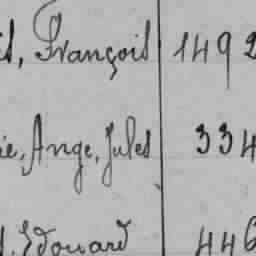 , François 1492
, Ange, Jules 334
Edouard 446